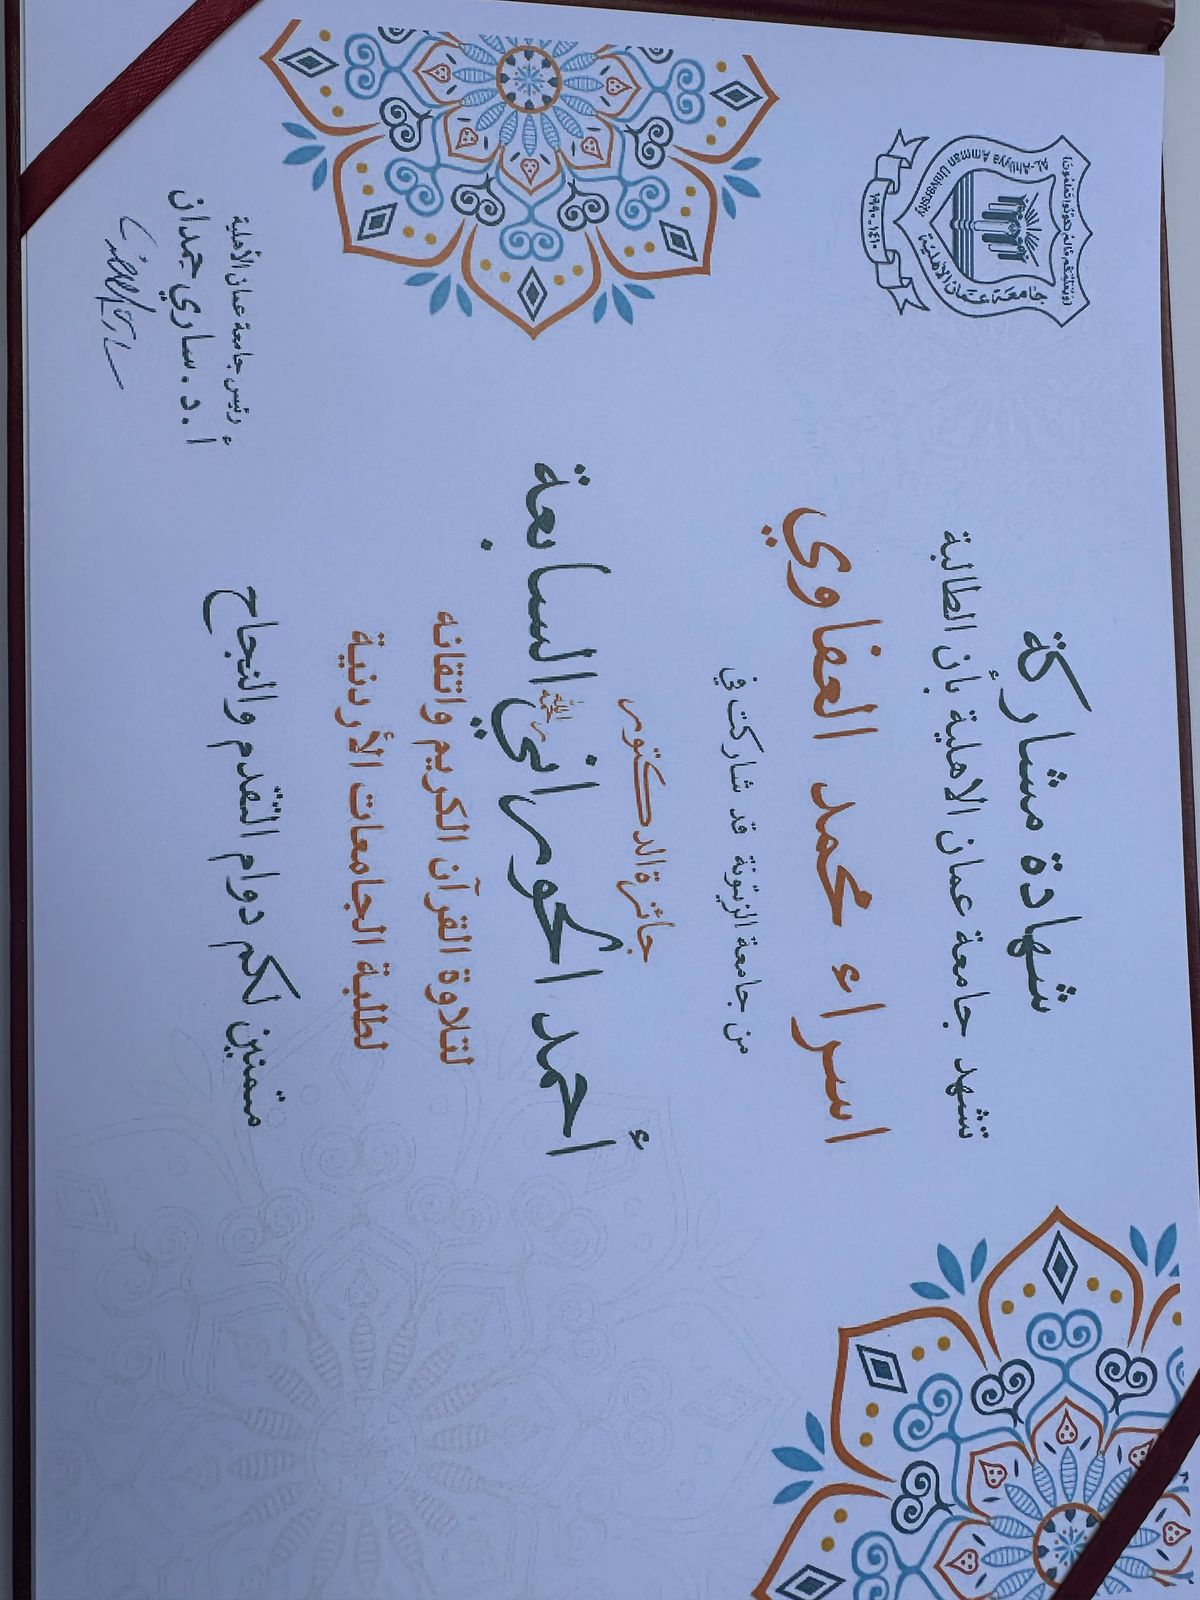 وَيُعَلِّمُكُم مَّا لَمْ تَكُونُوا تَعْلَمُونَ
Al-Ahliyya Amman University
جامعة عمان الأهلية
١٤١٠ - ١٩٩٠
شهادة مشاركة
تشهد جامعة عمان الاهلية بأن الطالبة
اسراء محمد العفاوي
من جامعة الزيتونة قد شاركت في
جائزة الدكتور
أحمد الحوراني السابعة
لتلاوة القرآن الكريم واتقانه
لطلبة الجامعات الأردنية
متمنين لكم دوام التقدم والنجاح
رئيس جامعة عمان الأهلية
أ. د. ساري حمدان